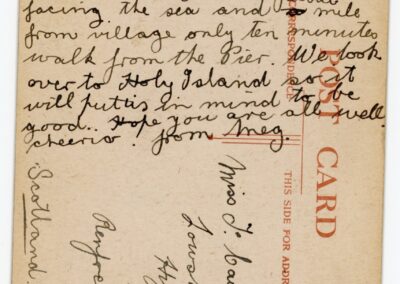 facing the sea and ½ mile
from village only ten minutes
walk from the Pier. We look
over to Holy Island so it
will put us in mind to be
good.. Hope you are all well.
cheerio. from Meg.
POST CARD
CORRESPONDENCE
THIS SIDE FOR ADDR
Miss J. 
Renfre
Scotland.